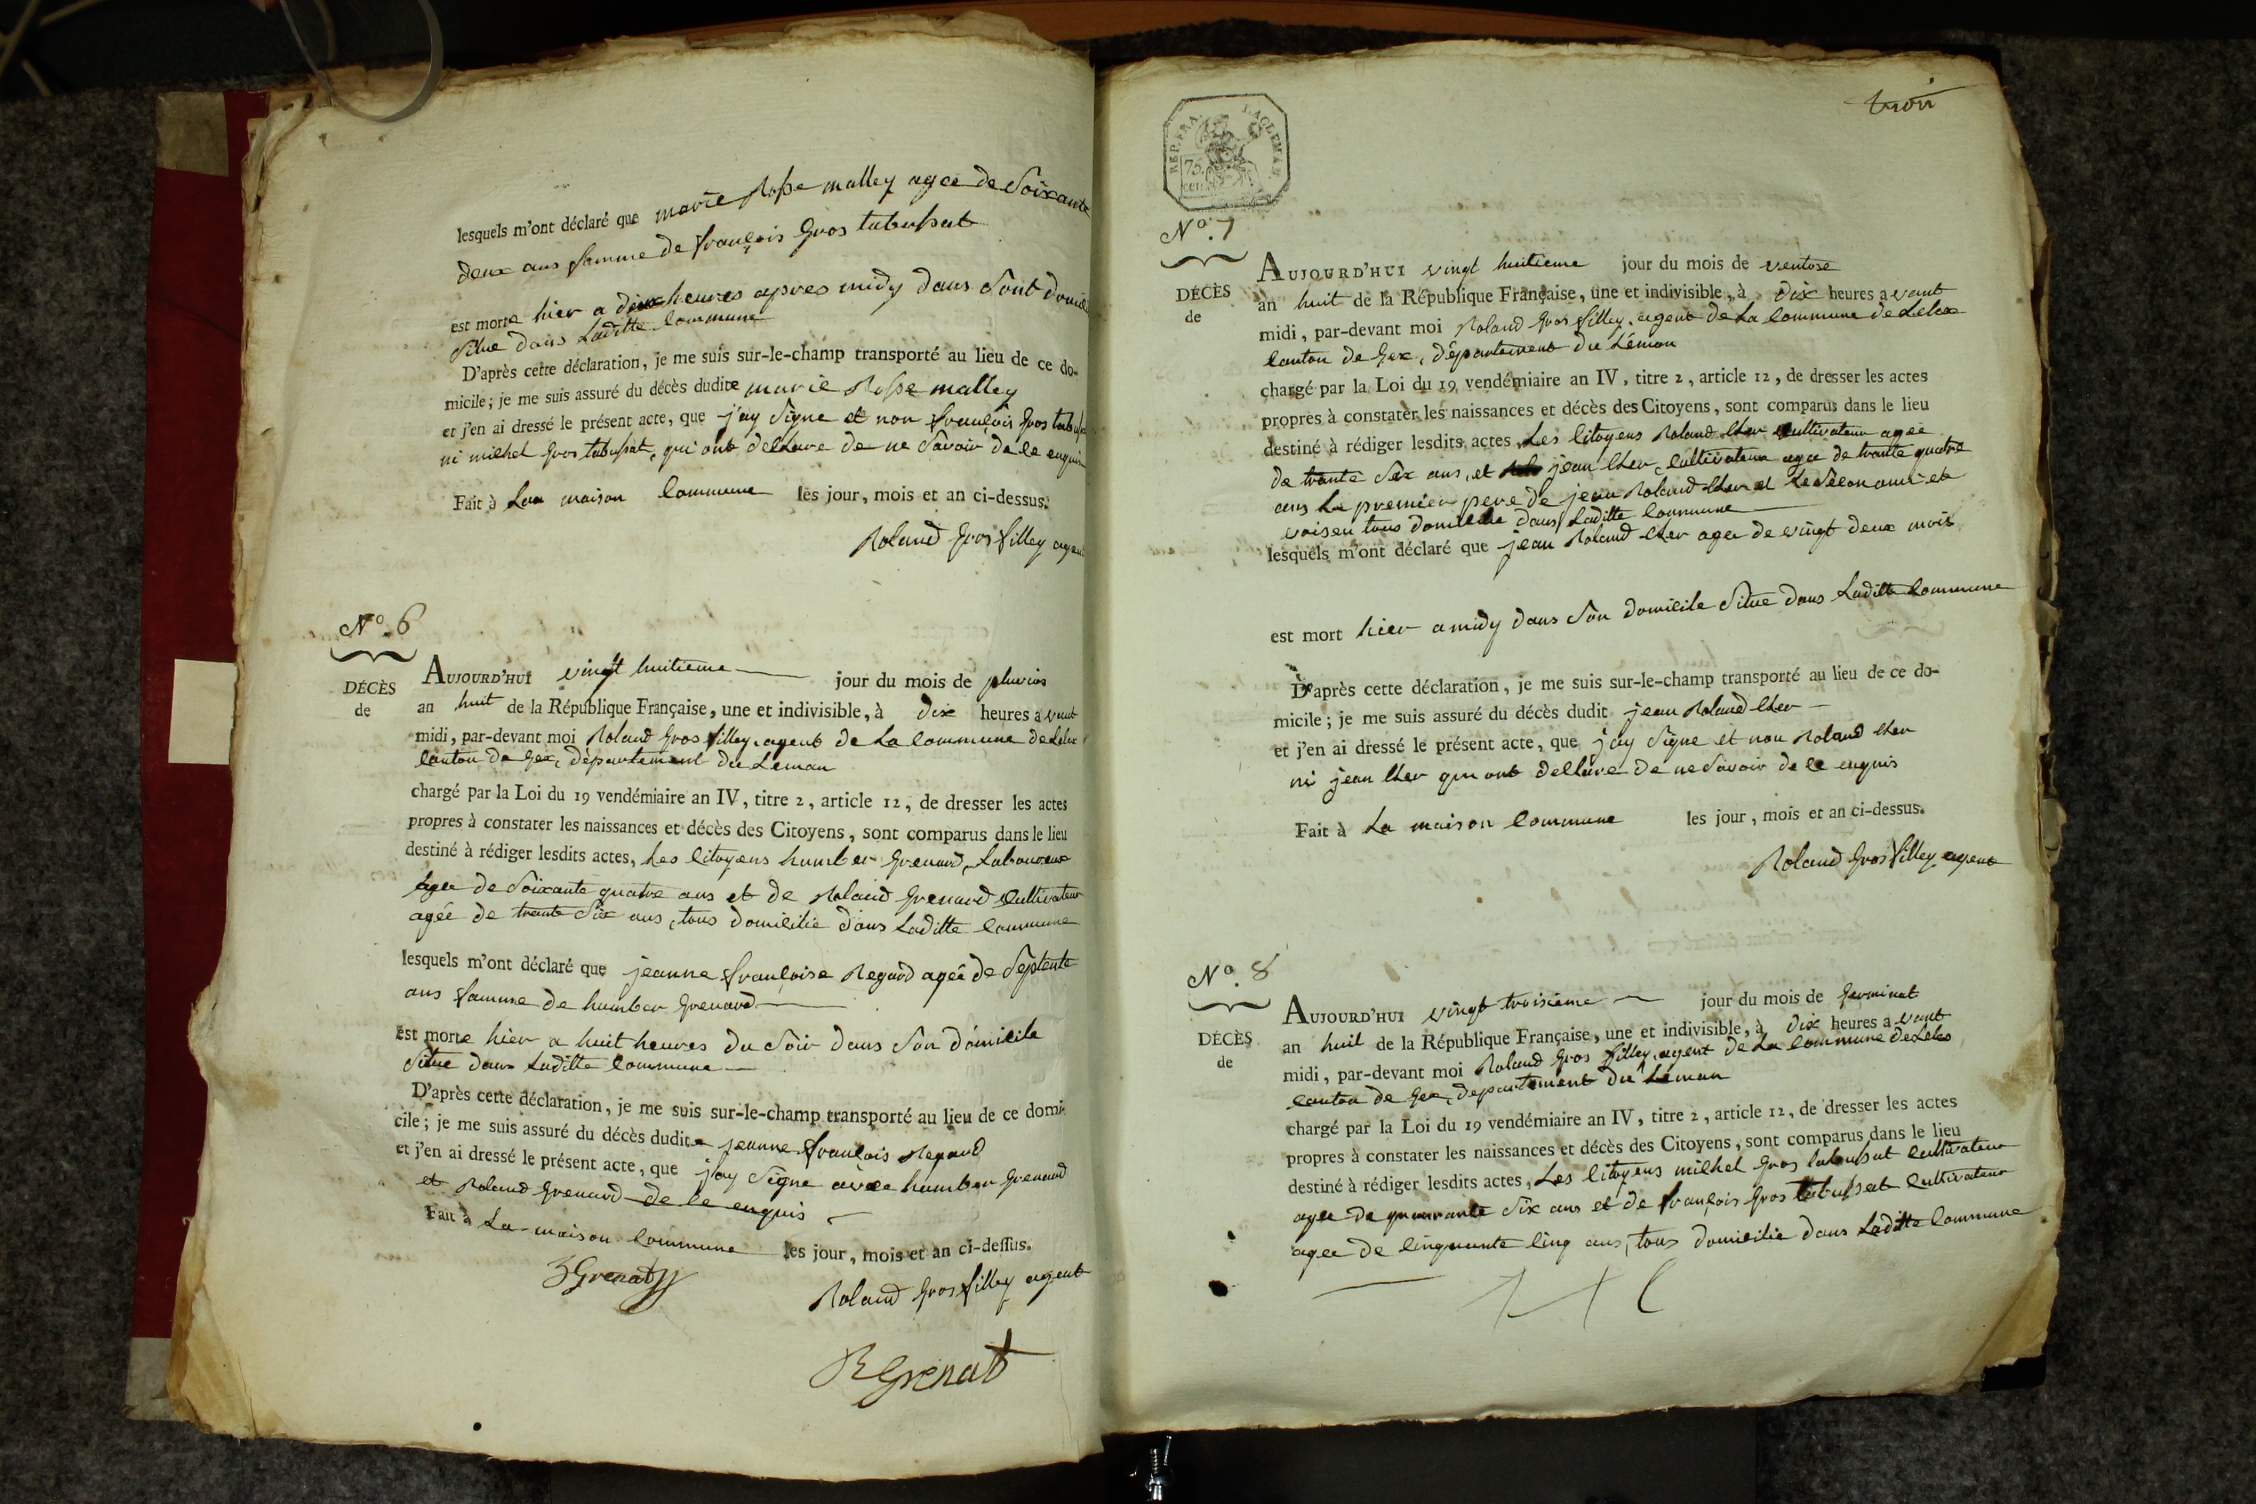 lesquels m'ont déclaré que marie Rosse malley agee de Soixante
deux ans famme de françois Gros tabussat
est morte hier a deux heures apres midy dans Sont domicil
Situe dans Laditte Commune
D'après cette déclaration, je me suis sur-le-champ transporté au lieu de ce do-
micile; je me suis assuré du décès dudite marie Rosse malley
et j'en ai dressé le présent acte, que j'ay Signe et non françois Gros tabussa
ni michel Gros tabussat, qui ont decleare de ne Savoir de ce enquis
Fait à Laa maison Commune les jour, mois et an ci-dessus.
Roland Gros filley agen
N°. 6
DÉCÈS
de
AUJOURD'HUI vingt huitieme jour du mois de pluvios
an huit de la République Française, une et indivisible, à dix heures avant
midi, par-devant moi Roland Gros filley, agent de La Commune de Lelex
Canton de Gex, département du Leman
chargé par la Loi du 19 vendémiaire an IV, titre 2, article 12, de dresser les actes
propres à constater les naissances et décès des Citoyens, sont comparus dans le lieu
destiné à rédiger lesdits actes, Les Citoyens humber Grenard, Laboureur
agee de Soixante quatre ans et de Roland Grenard Cultivateur
agée de trante Six ans, tous domicilie dans Laditte Commune
lesquels m'ont déclaré que jeanne françoise Regard agée de Septente
ans famme de humber Grenard
est morte hier a huit heures du Soir dans Son domicile
Situe dans Laditte Commune
D'après cette déclaration, je me suis sur-le-champ transporté au lieu de ce domi-
cile; je me suis assuré du décès dudite jeanne françois Regard
et j'en ai dressé le présent acte, que j'ay Signe avec humber Grenard
et Roland Grenard de ce enquis
Fait à La maison Commune les jour, mois et an ci-dessus.
Grenat
Roland Gros filley agent
R Grenat
troi
REP. FRA.
75
cent
N°. 7
DÉCÈS
de
AUJOURD'HUI vingt huitieme jour du mois de ventose
an huit de la République Française, une et indivisible, à dix heures avant
midi, par-devant moi Roland Gros filley, agent de La Commune de Lelex
Canton de Gex, département du Léman
chargé par la Loi du 19 vendémiaire an IV, titre 2, article 12, de dresser les actes
propres à constater les naissances et décès des Citoyens, sont comparus dans le lieu
destiné à rédiger lesdits actes, Les Citoyens Roland Cher Cultivateur agée
de trante Six ans, et jean Cher, Cultivateur agee de trante quatre
ans Le premier pere de jean Roland Cher et Le Second ami et
voisen tous domicilie dans Laditte Commune
lesquels m'ont déclaré que jean Roland Cher agee de vingt deux mois
est mort hier a midy dans Son domicile Situe dans Laditte Commune
D'après cette déclaration, je me suis sur-le-champ transporté au lieu de ce do-
micile; je me suis assuré du décès dudit jean Roland Cher
et j'en ai dressé le présent acte, que j'ay Signe et non Roland Cher
ni jean Cher qui ont decleare de ne Savoir de ce enquis
Fait à La maison Commune les jour, mois et an ci-dessus.
Roland Gros filley agent
N°. 8
DÉCÈS
de
AUJOURD'HUI vingt troisieme jour du mois de Germinal
an huit de la République Française, une et indivisible, à dix heures avant
midi, par-devant moi Roland Gros filley, agent de La Commune de Lelex
canton de Gex, departement du Léman
chargé par la Loi du 19 vendémiaire an IV, titre 2, article 12, de dresser les actes
propres à constater les naissances et décès des Citoyens, sont comparus dans le lieu
destiné à rédiger lesdits actes, Les Citoyens michel Gros tabussat Cultivateur
agee de quarante Six ans et de françois Gros tabussat Cultivateur
agee de Cinquante Cinq ans, tous domicilie dans Laditte Commune